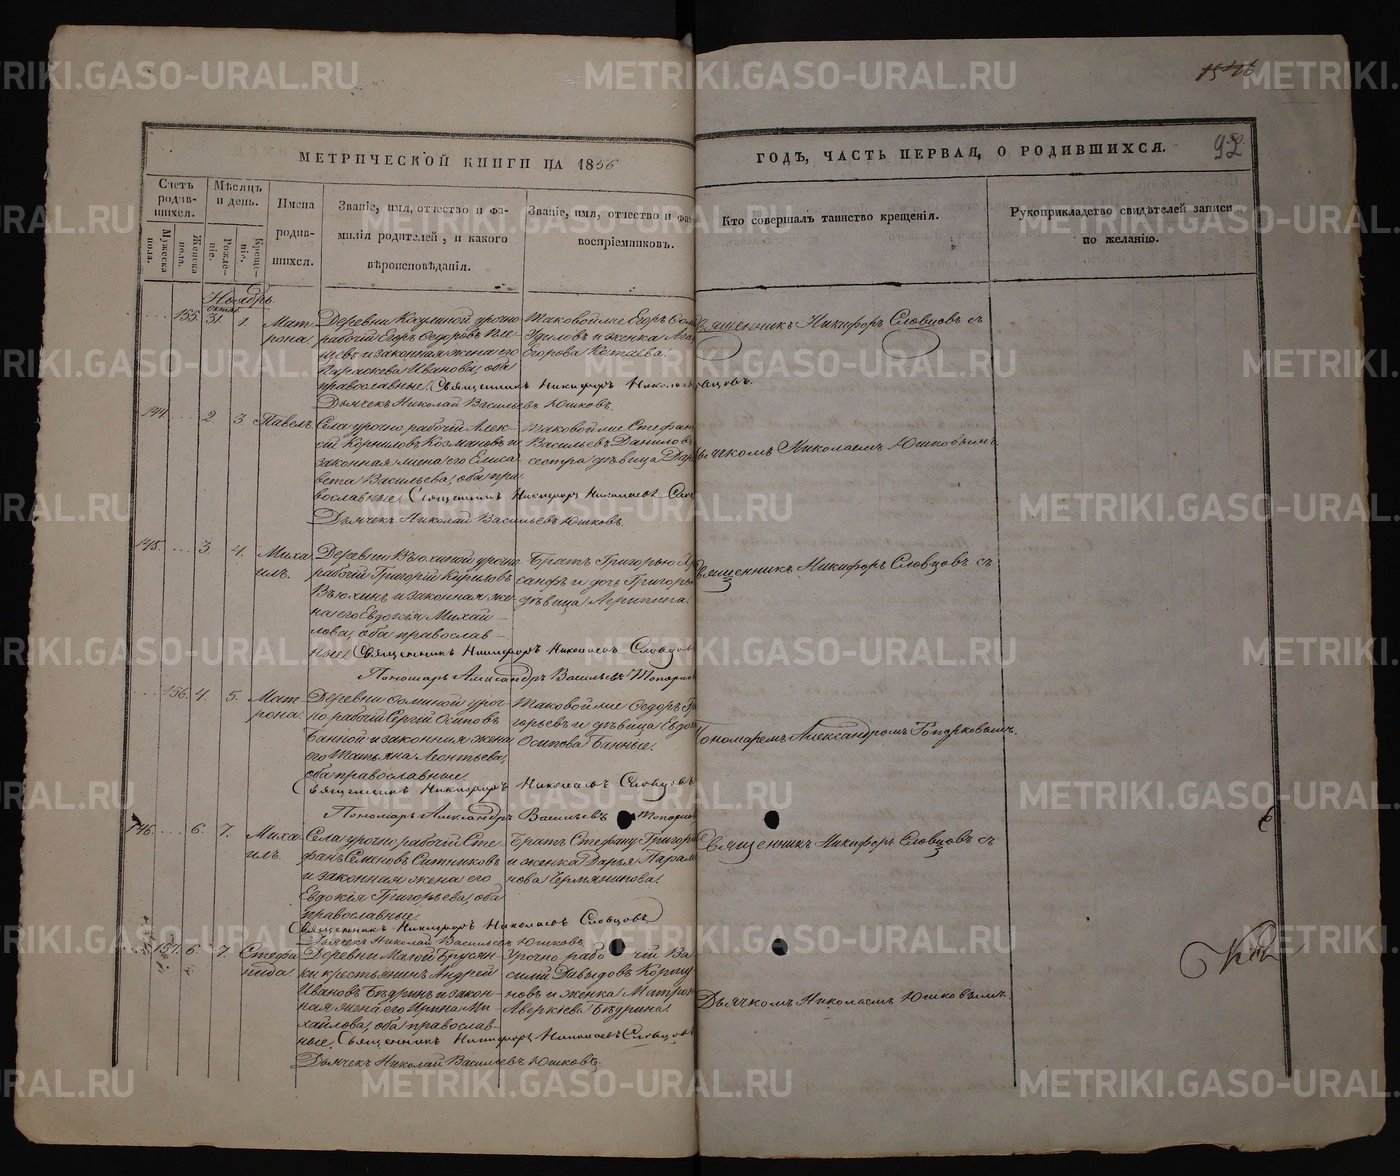 15.16
92
МЕТРИЧЕСКОЙ КНИГИ НА 1856
ГОДЪ, ЧАСТЬ ПЕРВАЯ, О РОДИВШИХСЯ.
Счетъ родив-шихся.
Мужеска пола.
Женска пола.
Мѣсяцъ и день.
Рожде-нiе.
Креще-нiе.
Имена родив-шихся.
Званiе, имя, отчество и фа-
милiя родителей, и какого
вѣроисповѣданiя.
Званiе, имя, отчество и фа-
воспрiемниковъ.
Кто совершалъ таинство крещенiя.
Рукоприкладство свидѣтелей записи
по желанiю.
Ноябрь
октяб
155. 31 1 Мат-
рона
Деревни Кодулиной урочно
рабочiй Егоръ Ѳедоровъ
и законная жена его
Параскева Иванова, оба
православные. Священникъ Никифоръ Николаевъ Словцовъ.
Дьячекъ Николай Васильевъ Юшковъ.
Таковой же Егоръ
и женка
Егорова
Священникъ Никифоръ Словцовъ съ
144. 2. 3. Павелъ.
Села урочно рабочiй Алек-
сѣй Корниловъ Козмановъ и
законная жена его Елиса-
вета Васильева, оба пра-
вославные. Священникъ Никифоръ Николаевъ Слов
Дьячекъ Николай Васильевъ Юшковъ.
Таковой же Стефан
Васильевъ Даниловъ
сестра дѣвица Дар
Дьячкомъ Николаемъ Юшковымъ.
145. 3. 4. Миха-
илъ.
Деревни Вьюхиной урочно
рабочiй Григорiй Кириловъ
Вьюхинъ и законная же-
на его Евдокiя Михай-
лова, оба православ-
ные. Священникъ Никифоръ Николаевъ Словцов
Пономарь Александръ Васильевъ Топорков
Братъ Григорью
и дочь Григорь
дѣвица Агрипина.
Священникъ Никифоръ Словцовъ съ
156. 4. 5. Мат-
рона.
Деревни Ѳоминой уроч-
но рабочiй Сергѣй Осиповъ
Банной и законная жена
его Татьяна Леонтьева,
оба православные.
Священникъ Никифоръ Николаевъ Словцовъ
Пономарь Александръ Васильевъ Топорков
Таковой же Ѳедоръ Гри
горьевъ и дѣвица Евдок
Осипова Банные.
Пономаремъ Александромъ Топорковымъ.
146. 6. 7. Миха-
илъ.
Села урочно рабочiй Сте-
фанъ Семеновъ Ситниковъ
и законная жена его
Евдокiя Григорьева, оба
православные.
Священникъ Никифоръ Николаевъ Словцовъ
Дьячекъ Николай Васильевъ Юшковъ.
Братъ Стефану Григорi
и женка Дарья Парам
нова Чермянинова.
Священникъ Никифоръ Словцовъ съ
157. 6. 7. Стефа-
нида.
Деревни Малой Брусян-
ки крестьянинъ Андрей
Ивановъ Бедринъ и закон-
ная жена его Ирина Ми-
хайлова, оба православ-
ные. Священникъ Никифоръ Николаевъ Словцовъ
Дьячекъ Николай Васильевъ Юшковъ.
Урочно рабочiй Ва
силiй Давыдовъ Коршу
новъ и женка Матрон
Аверкiева Бедрина.
Дьячкомъ Николаемъ Юшковымъ.
METRIKI.GASO-URAL.RU